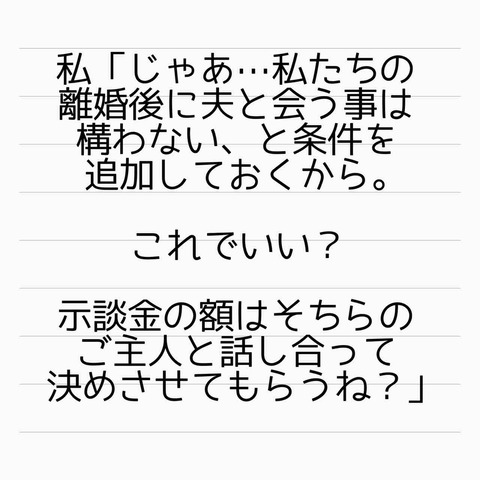 私「じゃあ…私たちの
離婚後に夫と会う事は
構わない、と条件を
追加しておくから。
これでいい？
示談金の額はそちらの
ご主人と話し合って
決めさせてもらうね？」